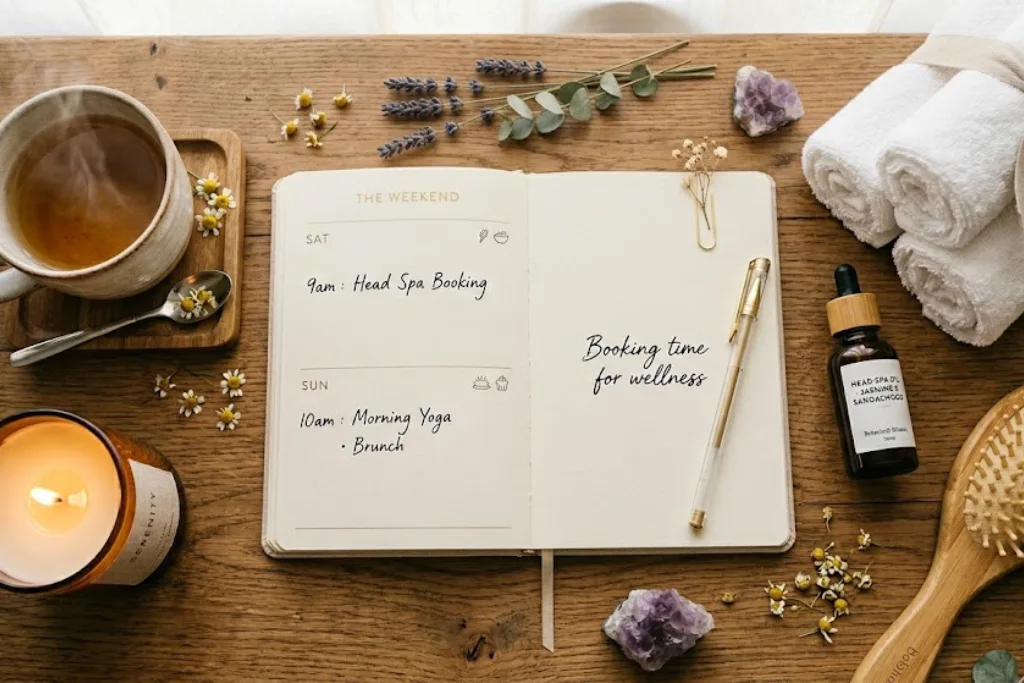 THE WEEKEND
SAT
9am : Head Spa Booking
SUN
10am : Morning Yoga
• Brunch
Booking time
for wellness
HEAD-SPA O'L
- JASNINE &
SANDACHOOD
SERENITY